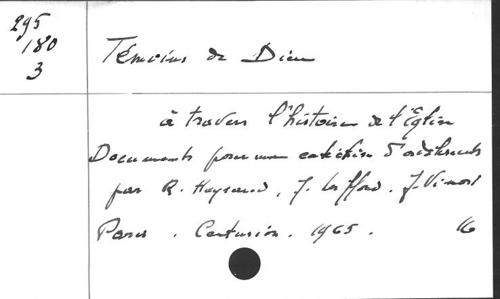 295
180
3
Témoins de Dieu
à travers l'histoire de l'Église
Documents pour une catéchèse d'adolescents
par R. J. J. Vimort
Paris. Centurion. 1965. 16